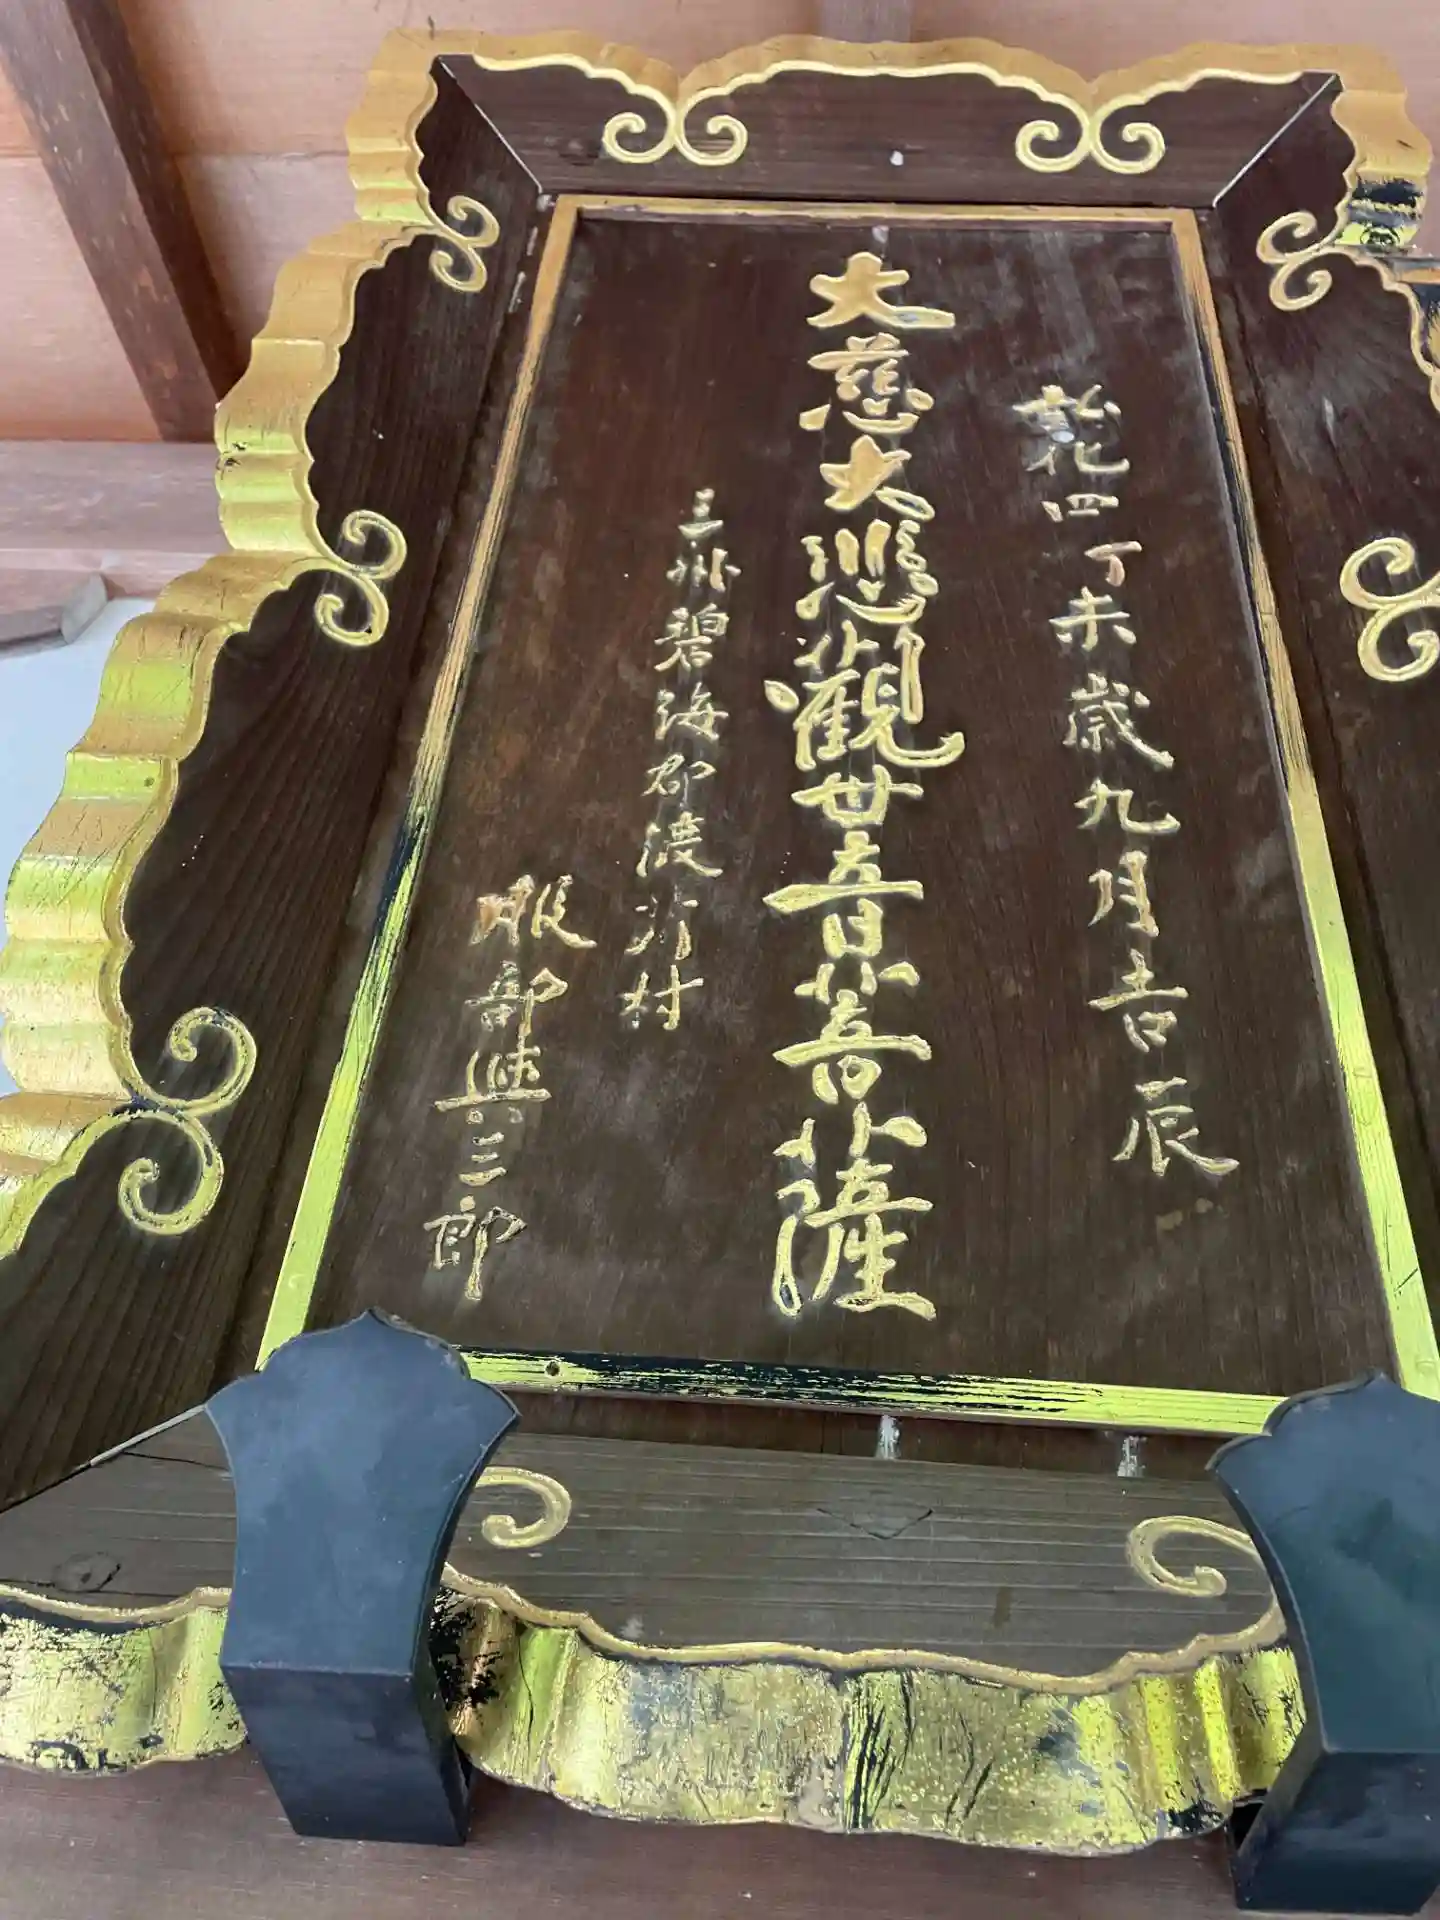 弘化四丁未歳九月吉辰
大慈大悲觀世音菩薩
三州碧海郡渡苅村
服部與三郎